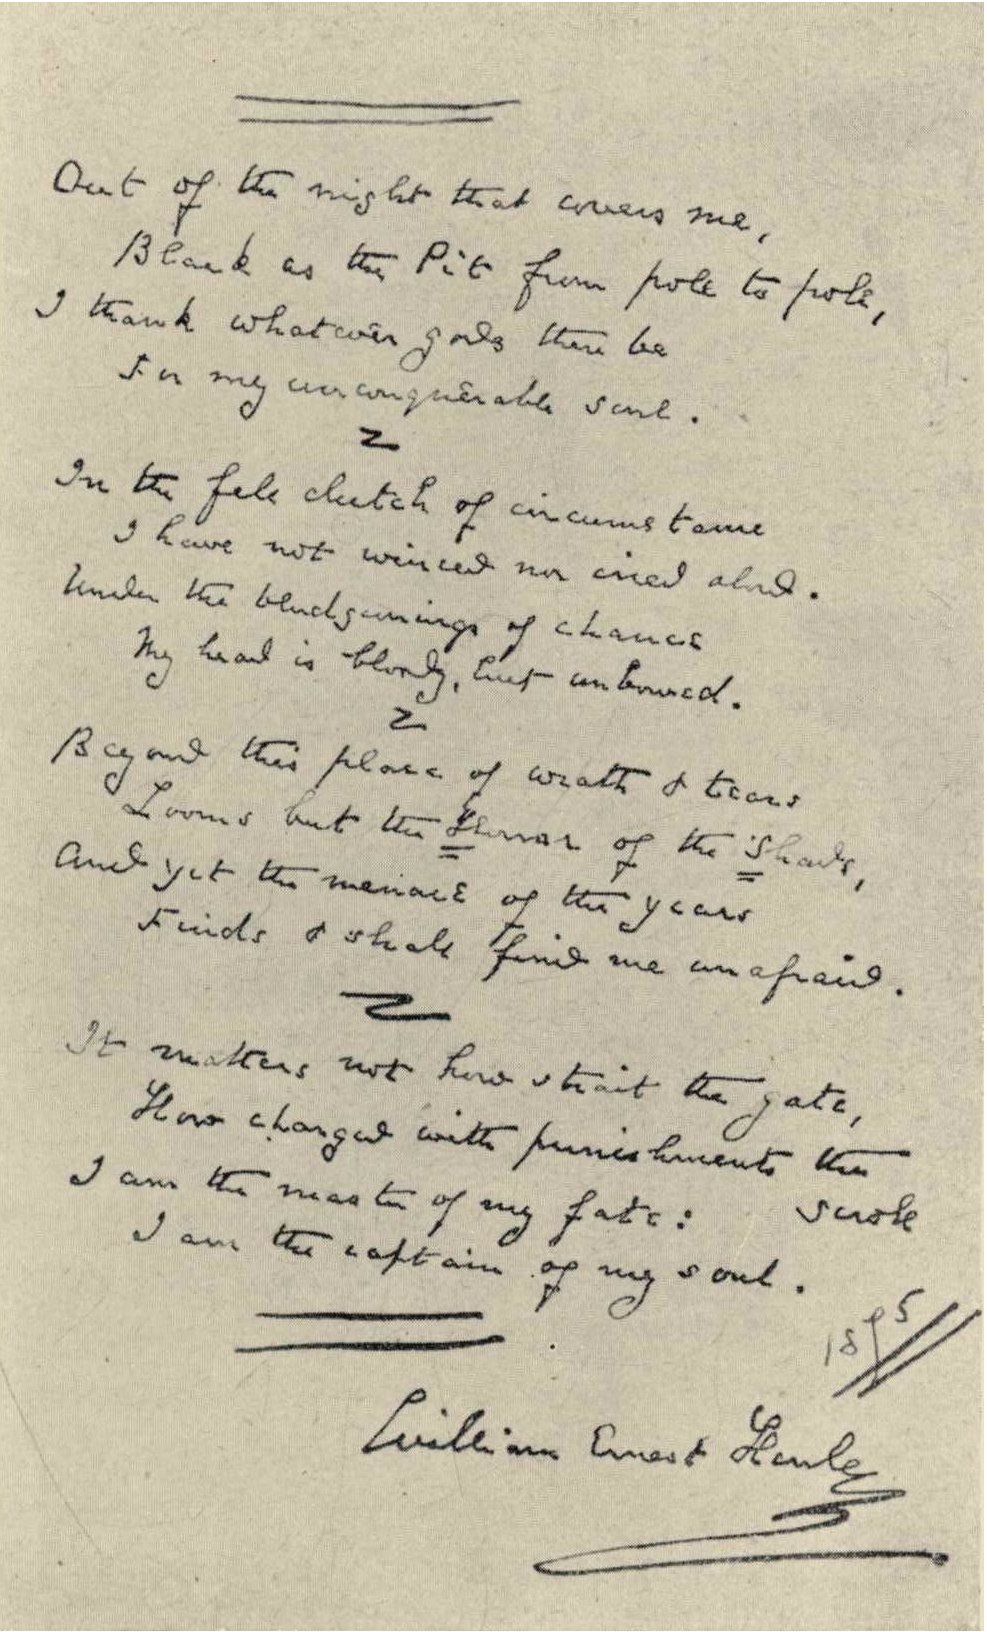 Out of the night that covers me,
Black as the Pit from pole to pole,
I thank whatever gods there be
For my unconquerable soul.
In the fell clutch of circumstance
I have not winced nor cried aloud.
Under the bludgeonings of chance
My head is bloody, but unbowed.
Beyond this place of wrath & tears
Looms but the Horror of the Shade,
And yet the menace of the years
Finds & shall find me unafraid.
It matters not how strait the gate,
How charged with punishments the
scroll
I am the master of my fate:
I am the captain of my soul.
William Ernest Henley